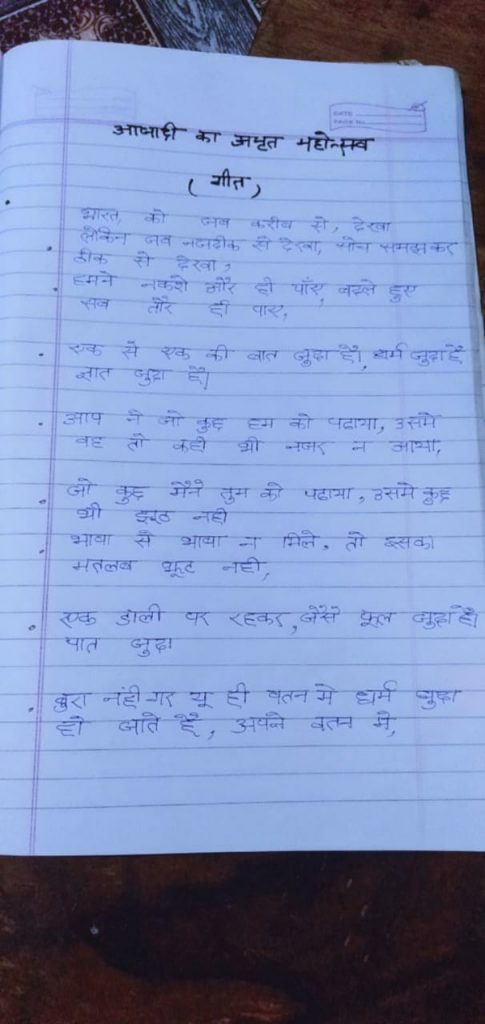 DATE
PAGE No.
आजादी का अमृत महोत्सव
( गीत )
भारत, को जब करीब से, देखा
लेकिन जब नजदीक से देखा, सोच समझ कर
ठीक से देखा,
हमने नक्शे और ही पाए, बदले हुए
सब तौर ही पाए,
एक से एक की बात जुदा है। धर्म जुदा है
जात जुदा है।
आप ने जो कुछ हम को पढाया, उसमे
वह तो कही भी नजर न आया,
जो कुछ मैंने तुम को पढाया, उसमे कुछ
भी झूठ नही
भाषा से भाषा न मिले, तो इसका
मतलब फूट नही,
एक डाली पर रहकर, जैसे फूल जुदा है।
पात जुदा
बुरा नंही गर यू ही वतन मे धर्म जुदा
हो जाते है, अपने वतन मे,